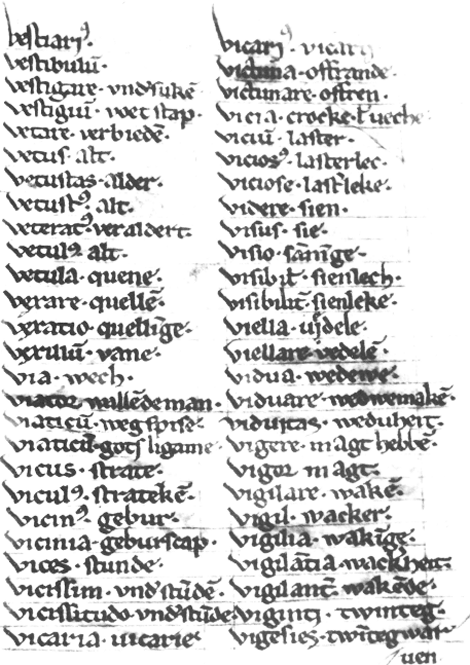 vestiari⁹.
vestibulū.
vestigare. vnd'sukē
vestigiū. voet stap.
vetare. verbiedē.
vetus. alt.
vetustas. alder.
vetust⁹. alt.
veterat⁹. veraldert.
vetul⁹. alt.
vetula. quene.
vexare. quellē.
vexatio. quellīge.
vexillū. vane.
via. wech.
viator. wallēde man.
viaticū. wegspise.
viaticū. gots ligame
vicus. strate.
vicul⁹. stratekē.
vicin⁹. gebur.
vicinia. geburscap.
vices. stunde.
vicissim. vnd'stūdē.
vicissitudo. vnd'stūde.
vicaria. uicarie
vicari⁹. vicari
victima. offrande.
victimare. offren.
vicia. crocke. ł ueche
viciū. laster.
vicios⁹. lasterlec.
viciose. last'leke.
videre. sien.
visus. sie.
visio. sānīge.
visibił. sienlech.
visibilit̄. sienleke.
viella. uidele.
viellare. vedelē.
vidua. wedewe.
viduare. wedwemakē.
viduitas. weduheit.
vigere. magt hebbē.
vigor. magt.
vigilare. wakē.
vigil. wacker.
vigilia. wakīge.
vigilātia. wackheit.
vigilant̄. wakēde.
viginti. twinteg.
vigesies. twīteg war
uen